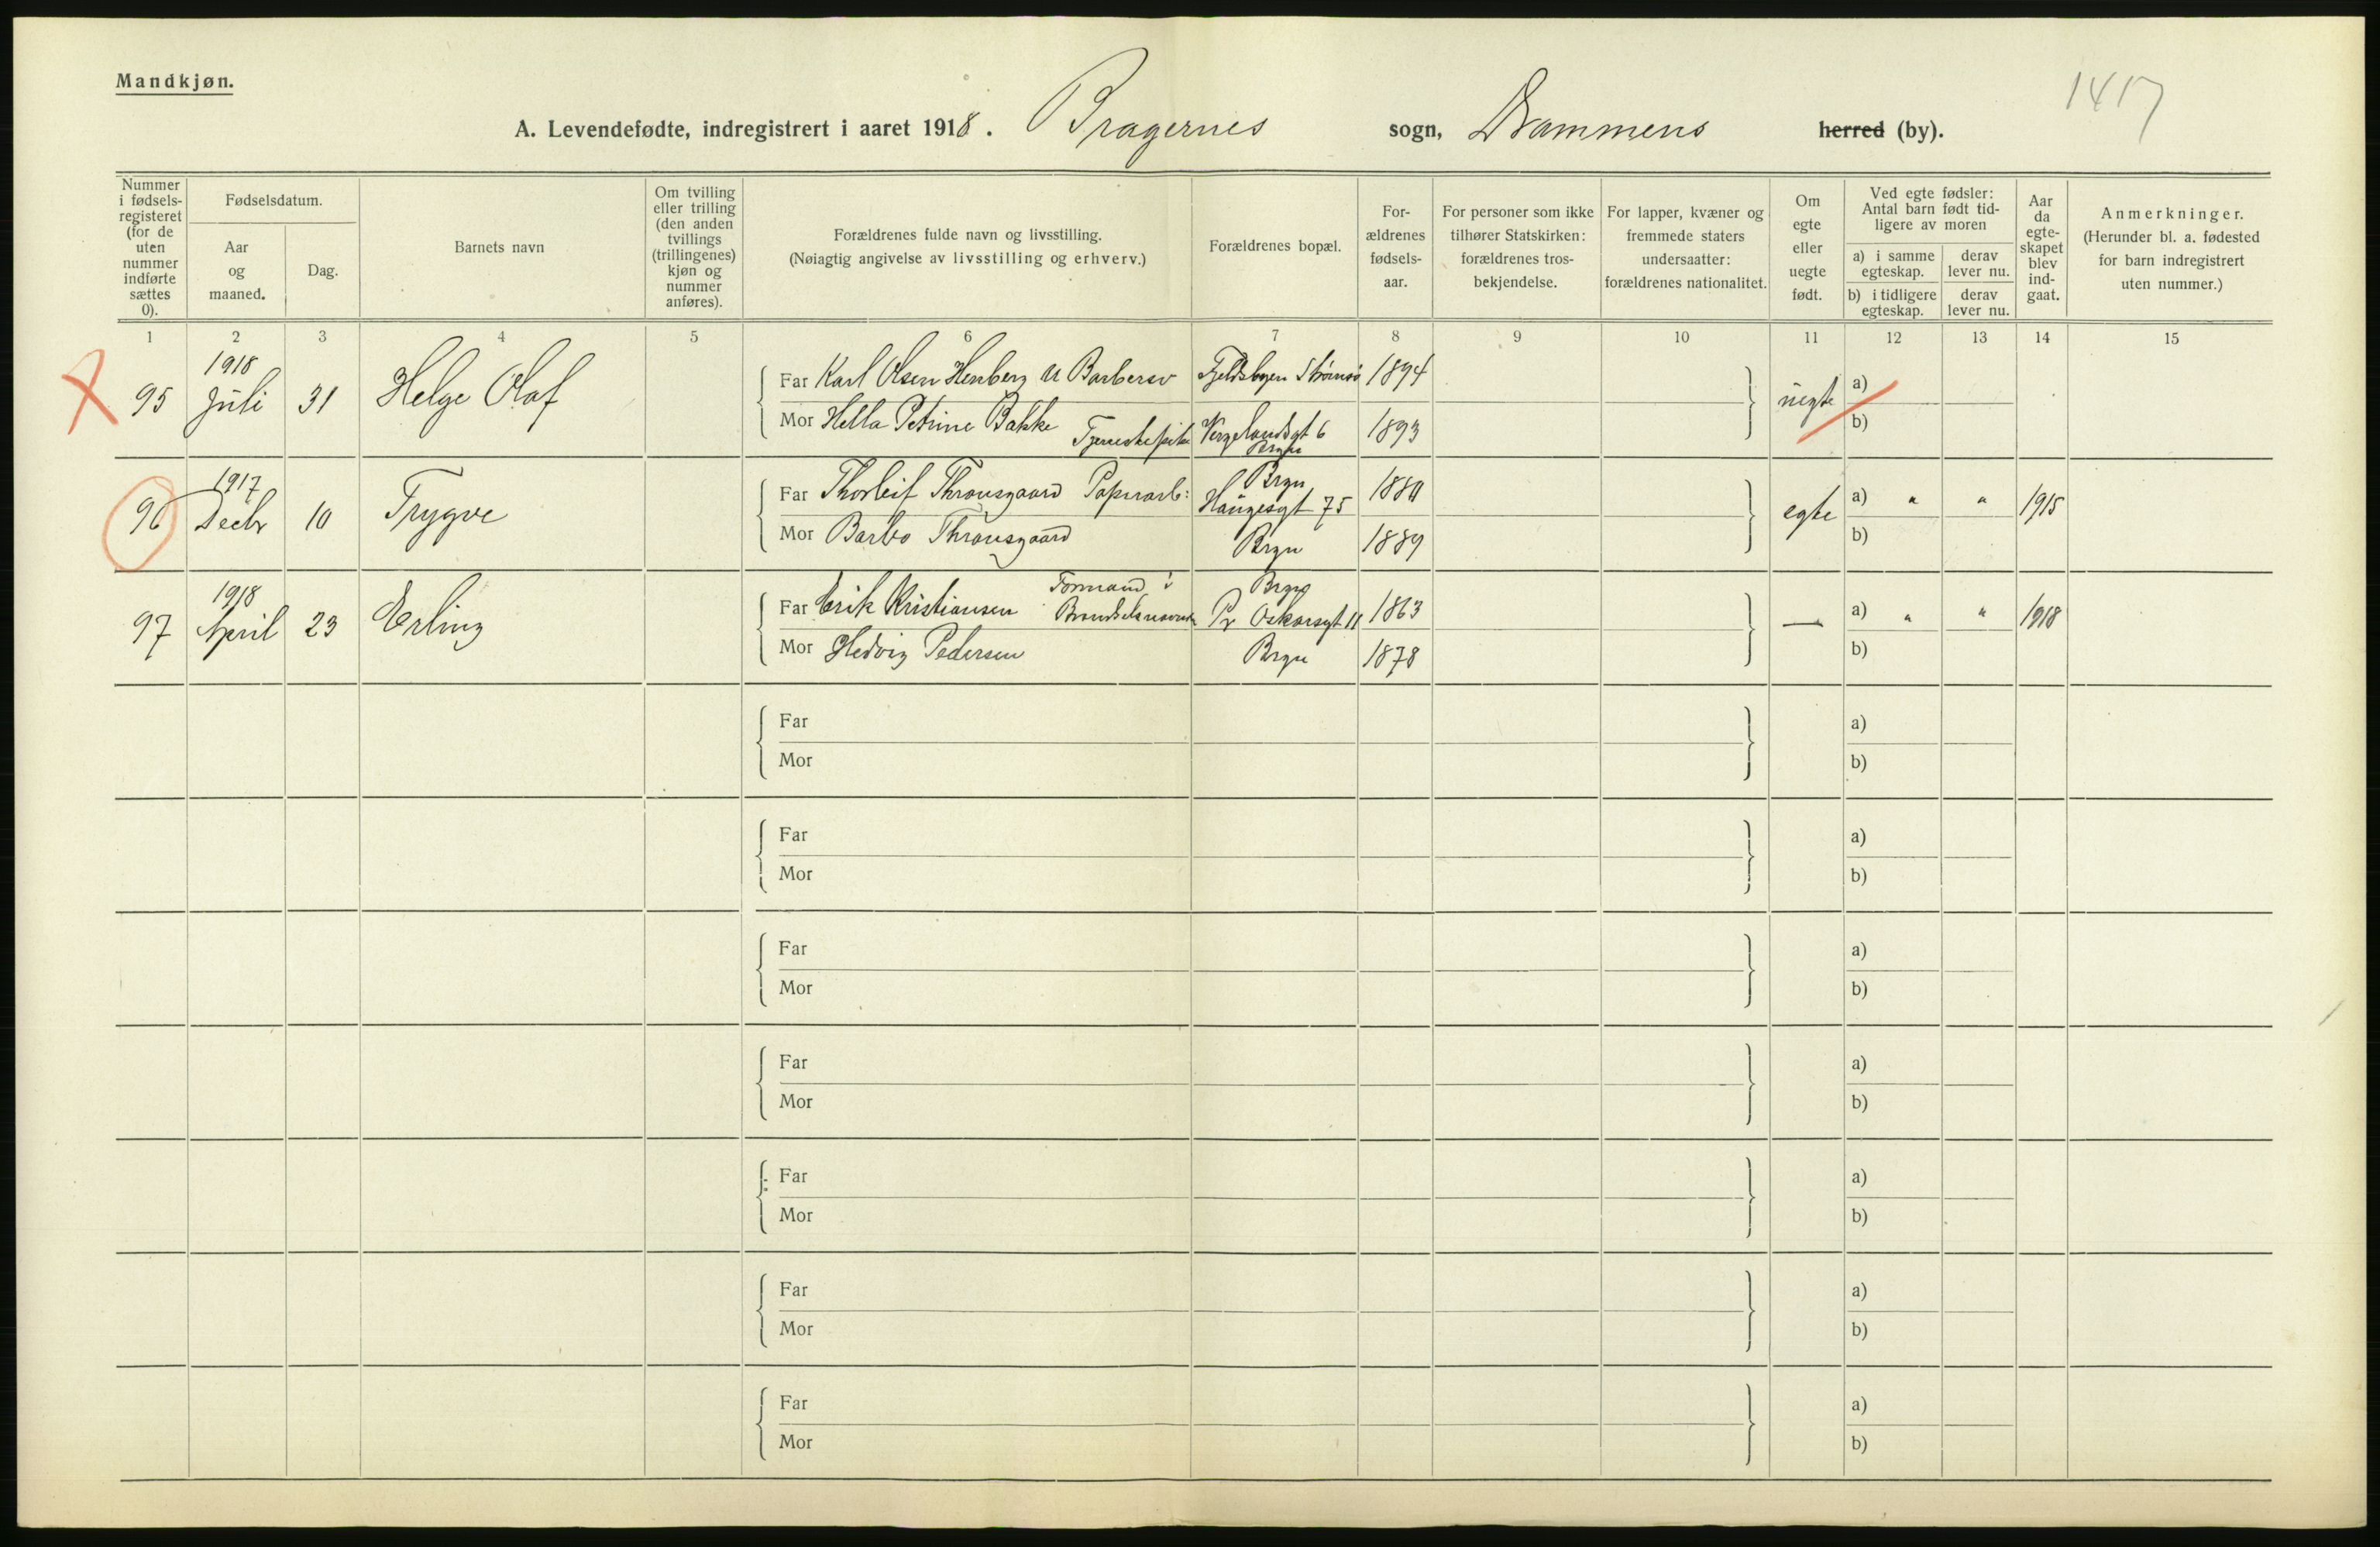 Mandkjøn.
1417
A. Levendefødte, indregistrert i aaret 1918. Bragernes sogn, Drammens herred (by).
Nummer i fødsels-registeret (for de uten nummer indførte sættes 0).
Fødselsdatum.
Aar og maaned.
Dag.
Barnets navn
Om tvilling eller trilling (den anden tvillings (trillingenes) kjøn og nummer anføres).
Forældrenes fulde navn og livsstilling.
(Nøiagtig angivelse av livsstilling og erhverv.)
Forældrenes bopæl.
For-ældrenes fødsels-aar.
For personer som ikke tilhører Statskirken: forældrenes tros-bekjendelse.
For lapper, kvæner og fremmede staters undersaatter: forældrenes nationalitet.
Om egte eller uegte født.
Ved egte fødsler: Antal barn født tid-ligere av moren
a) i samme egteskap.
derav lever nu.
b) i tidligere egteskap.
derav lever nu.
Aar da egte-skapet blev ind-gaat.
Anmerkninger.
(Herunder bl. a. fødested for barn indregistrert uten nummer.)
1 2 3 4 5 6 7 8 9 10 11 12 13 14 15
95 1918 Juli 31 Helge Olaf
Far Karl Olsen Henberg U Barbersv Strømsø 1894
Mor Hella Petrine Bakke Tjenestepike Vergelandsgt 6 Brgn 1893
uegte a) b)
96 1917 Decbr 10 Trygve
Far Thorleif Thronsgaard Papirarb: Brgn Haugesgt 75 1880
Mor Barbo Thronsgaard Brgn 1889
egte a) " " 1915
b)
97 1918 April 23 Erling
Far Erik Kristiansen Formand i Brgn Pr Oskarsgt 11 1863
Mor Hedvig Pedersen Brgn 1878
— a) " " 1918
b)
Far a)
Mor b)
Far a)
Mor b)
Far a)
Mor b)
Far a)
Mor b)
Far a)
Mor b)
Far a)
Mor b)
Far a)
Mor b)